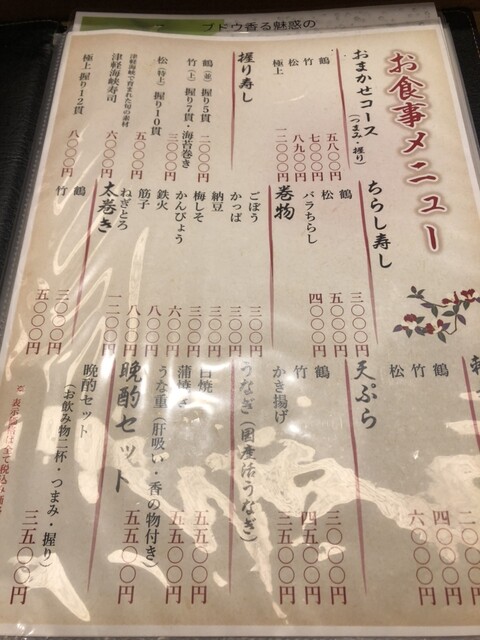 ブドウ香る魅惑の
お食事メニュー
おまかせコース(つまみ・握り)
鶴 五八〇〇円
竹 七〇〇〇円
松 八九〇〇円
極上 一二〇〇〇円
握り寿し
鶴(並) 握り5貫 二〇〇〇円
竹(上) 握り7貫・海苔巻き 三〇〇〇円
松(特上) 握り10貫 五〇〇〇円
津軽海峡で育まれた旬の素材
津軽海峡寿司 六〇〇〇円
極上 握り12貫 八〇〇〇円
ちらし寿し
鶴 三〇〇〇円
松 五〇〇〇円
バラちらし 四〇〇〇円
巻物
ごぼう 三〇〇円
かっぱ 三〇〇円
納豆 三〇〇円
梅しそ 三〇〇円
かんぴょう 六〇〇円
鉄火 八〇〇円
筋子 八〇〇円
ねぎとろ 一二〇〇円
太巻き
鶴 三〇〇〇円
竹 五〇〇〇円
鶴
竹 四〇〇〇円
松 六〇〇〇円
天ぷら
鶴
竹 四五〇〇円
かき揚げ
うなぎ(国産活うなぎ)
白焼 五五〇〇円
蒲焼き 五五〇〇円
うな重(肝吸い・香の物付き) 五五〇〇円
晩酌セット
晩酌セット 三五〇〇円
(お飲み物二杯・つまみ・握り)